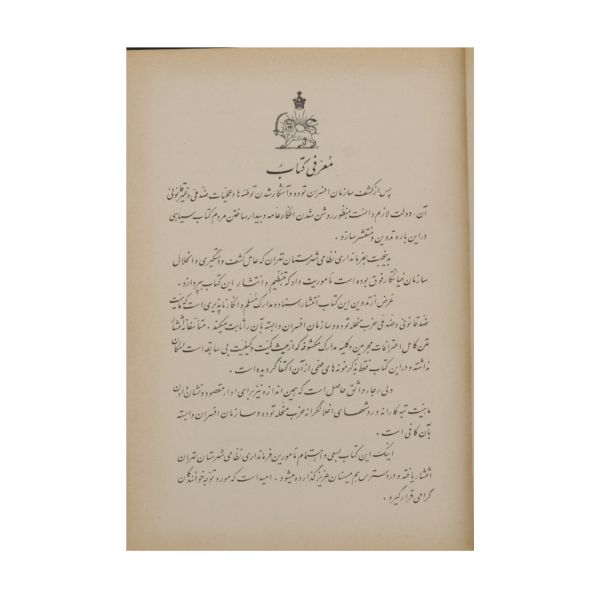 معرفی کتاب
پس از کشف سازمان افسران توده و آشکار شدن توطئه ها و عملیات ضد ملی و غیر قانونی
آن دولت لازم دانست بمنظور روشن شدن افکار عامه و بیدار ساختن مردم کتاب سیاهی
در این باره تدوین و منتشر سازد .
بدینجهت بفرمانداری نظامی شهرستان تهران که عامل کشف و دستگیری و انحلال
سازمان خیانتکار فوق بوده است مأموریت داد که بتنظیم و انتشار این کتاب بپردازد .
غرض از تدوین این کتاب انتشار اسناد و مدارک مسلم و انکار ناپذیری است که ماهیت
ضد قانونی و ضد ملی حزب منحله توده و سازمان افسران وابسته بآن را ثابت میکند . متأسفانه انتشار
متن کامل اعترافات مجرمین و کلیه مدارک مکشوفه که از حیث کمیت و کیفیت بی سابقه است امکان
نداشته و در این کتاب فقط بذکر نمونه های مختصری از آن اکتفا گردیده است .
ولی رجاء واثق حاصل است که همین اندازه نیز برای ادا مقصود و نشان دادن
ماهیت تبه کارانه و روشهای اخلالگرانه حزب منحله توده و سازمان افسران وابسته
بآن کافی است .
اینک این کتاب بسعی و اهتمام مأمورین فرمانداری نظامی شهرستان تهران
انتشار یافته و در دسترس هم میهنان عزیز گذارده میشود . امید است که مورد توجه خوانندگان
گرامی قرار گیرد .